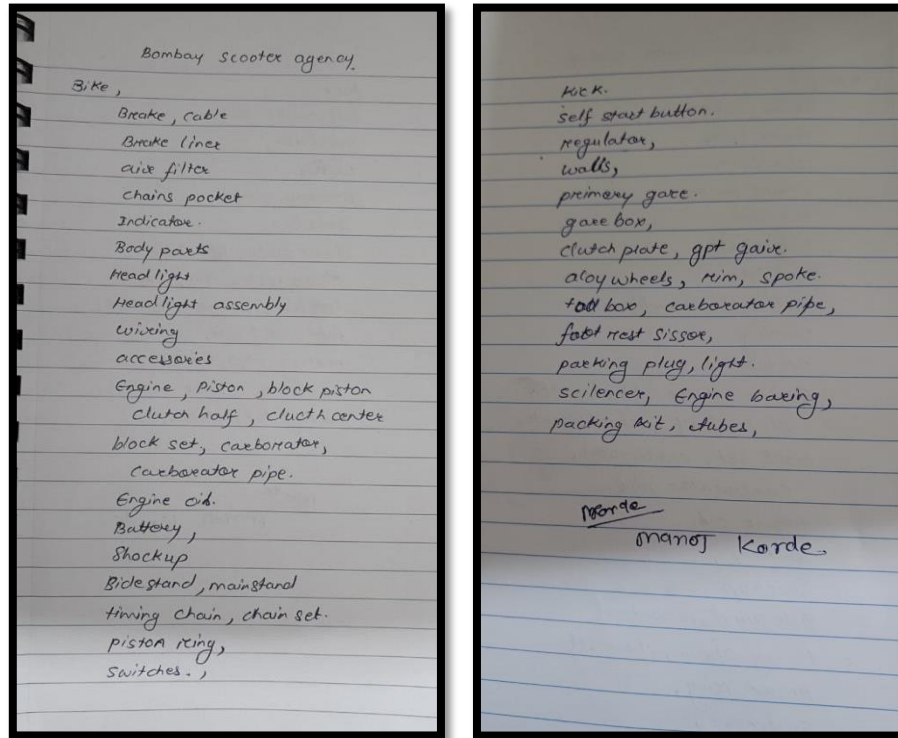 Bombay scooter agency.
Bike,
Breake, cable
Breake liner
aire filter
chains pocket
Indicator.
Body parts
Head light
Head light assembly
wiring
accessories
Engine, piston, block piston
clutch half, clucth center
block set, carborrator,
carborator pipe.
Engine oil.
Battery,
Shockup
Sidestand, mainstand
timing chain, chain set.
piston ring,
switches.,
kick.
self start button.
regulator,
walls,
primery gare.
gare box,
clutch plate, gpt gaire.
aloy wheels, rim, spoke.
box, carborator pipe,
foot rest sissor,
parking plug, light.
scilencer, Engine baring,
packing kit, tubes,
manoj Korde.